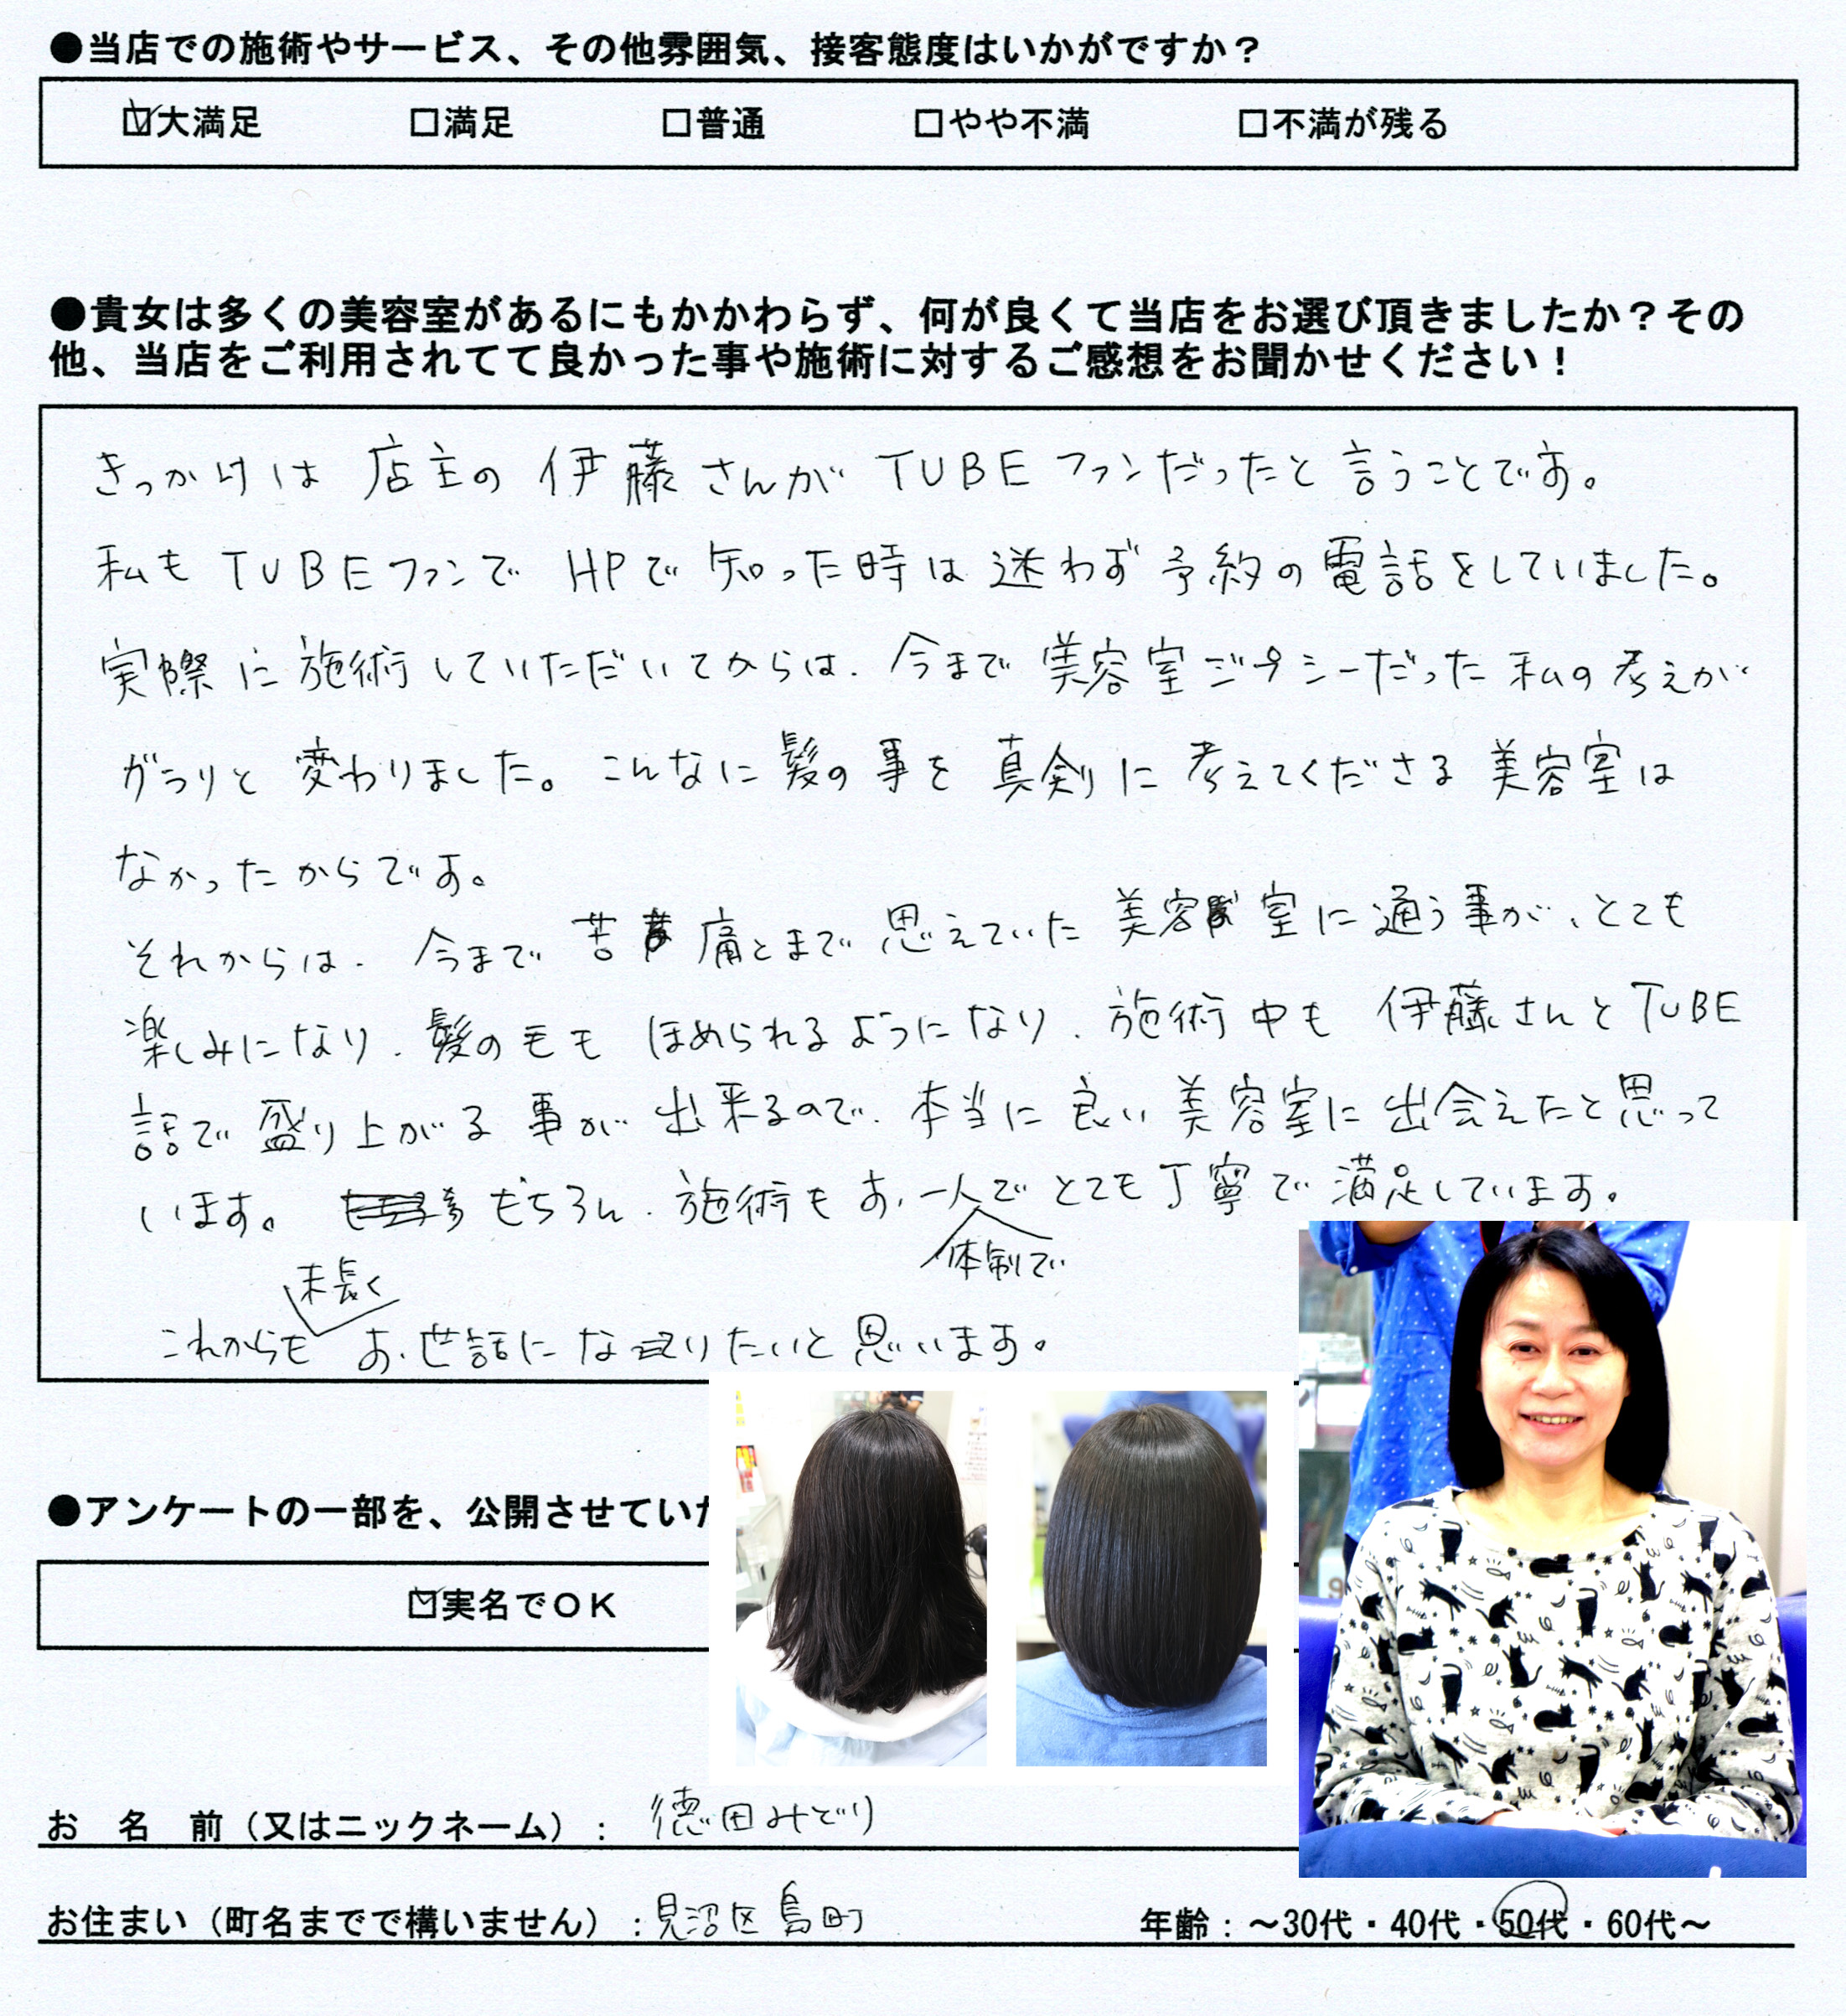 ●当店での施術やサービス、その他雰囲気、接客態度はいかがですか？
☑大満足 □満足 □普通 □やや不満 □不満が残る
●貴女は多くの美容室があるにもかかわらず、何が良くて当店をお選び頂きましたか？その
他、当店をご利用されてて良かった事や施術に対するご感想をお聞かせください！
きっかけは店主の伊藤さんがTUBEファンだったと言うことです。
私もTUBEファンでHPで知った時は迷わず予約の電話をしていました。
実際に施術していただいてからは、今まで美容室ジプシーだった私の考えが
ガラリと変わりました。こんなに髪の事を真剣に考えてくださる美容室は
なかったからです。
それからは、今まで苦痛とまで思えていた美容室に通う事が、とても
楽しみになり、髪の毛もほめられるようになり、施術中も伊藤さんとTUBE
話で盛り上がる事が出来るので、本当に良い美容室に出会えたと思って
います。もちろん、施術もお一人体制でとても丁寧で満足しています。
これからも末長くお世話になりたいと思います。
●アンケートの一部を、公開させていた
☑実名でＯＫ
お　名　前（又はニックネーム）：徳田みどり
お住まい（町名までで構いません）：見沼区島町 年齢：～30代・40代・50代・60代～